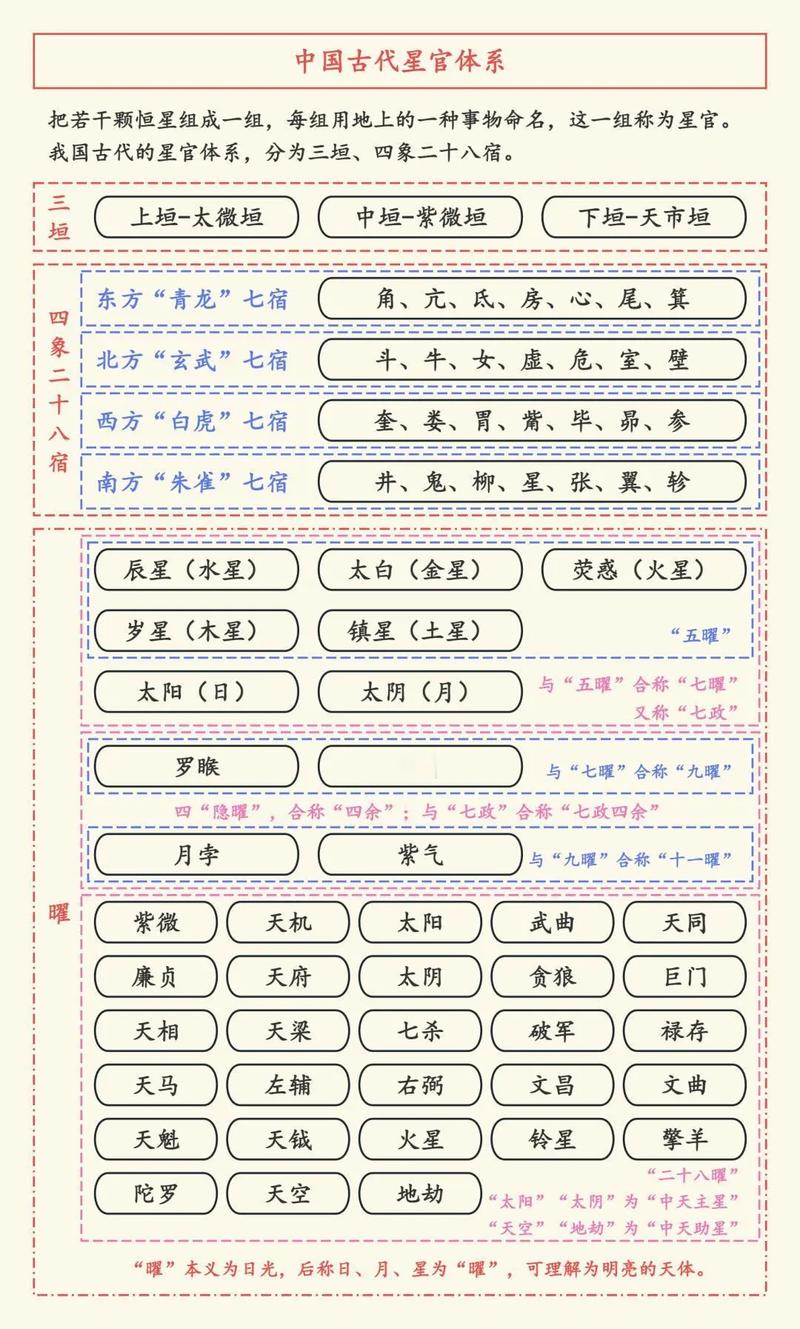 中国古代星官体系
把若干颗恒星组成一组，每组用地上的一种事物命名，这一组称为星官。
我国古代的星官体系，分为三垣、四象二十八宿。
三垣
上垣-太微垣 中垣-紫微垣 下垣-天市垣
四象二十八宿
东方“青龙”七宿 角、亢、氐、房、心、尾、箕
北方“玄武”七宿 斗、牛、女、虚、危、室、壁
西方“白虎”七宿 奎、娄、胃、觜、毕、昴、参
南方“朱雀”七宿 井、鬼、柳、星、张、翼、轸
曜
辰星（水星） 太白（金星） 荧惑（火星）
岁星（木星） 镇星（土星） “五曜”
太阳（日） 太阴（月） 与“五曜”合称“七曜”
又称“七政”
罗睺 与“七曜”合称“九曜”
四“隐曜”，合称“四余”；与“七政”合称“七政四余”
月孛 紫气 与“九曜”合称“十一曜”
紫微 天机 太阳 武曲 天同
廉贞 天府 太阴 贪狼 巨门
天相 天梁 七杀 破军 禄存
天马 左辅 右弼 文昌 文曲
天魁 天钺 火星 铃星 擎羊
陀罗 天空 地劫
“二十八曜”
“太阳”“太阴”为“中天主星”
“天空”“地劫”为“中天助星”
“曜”本义为日光，后称日、月、星为“曜”，可理解为明亮的天体。